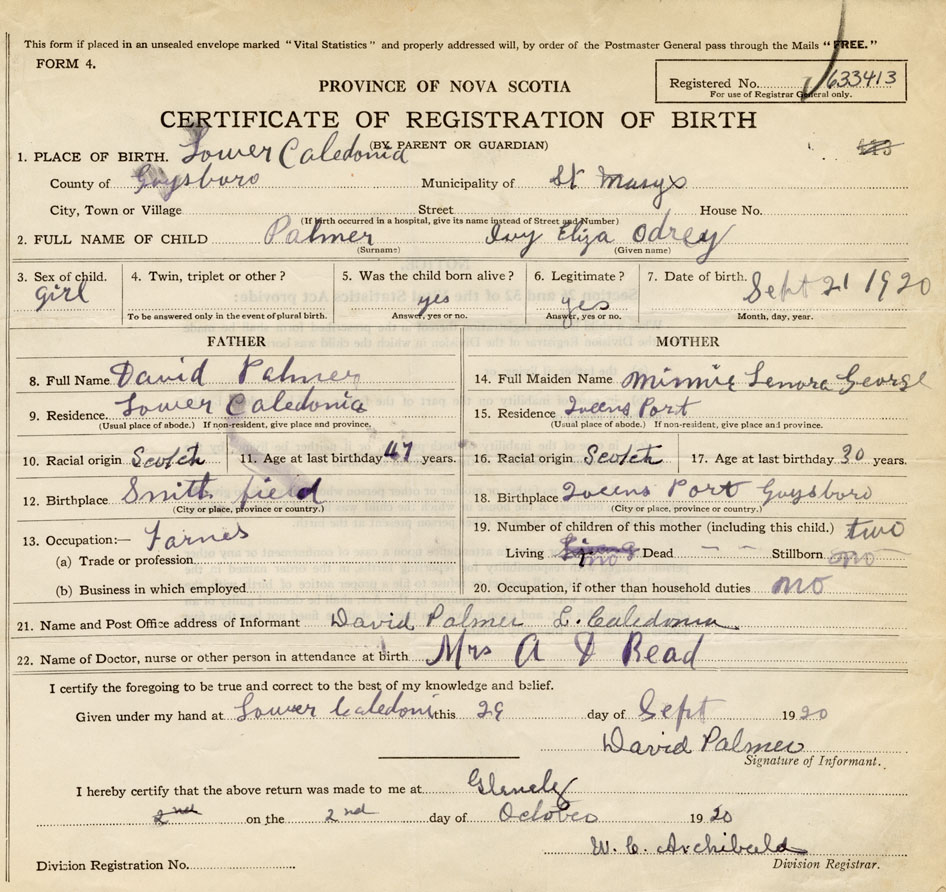 This form if placed in an unsealed envelope marked "Vital Statistics" and properly addressed will, by order of the Postmaster General pass through the Mails "FREE."
FORM 4.
PROVINCE OF NOVA SCOTIA
Registered No. 633413
For use of Registrar General only.
CERTIFICATE OF REGISTRATION OF BIRTH
(BY PARENT OR GUARDIAN)
1. PLACE OF BIRTH. Lower Caledonia
County of Guysboro Municipality of St Marys
City, Town or Village Street House No.
(If birth occurred in a hospital, give its name instead of Street and Number)
2. FULL NAME OF CHILD Palmer Ivy Eliza Odrey
(Surname) (Given name)
3. Sex of child. 4. Twin, triplet or other? 5. Was the child born alive? 6. Legitimate? 7. Date of birth. Sept 21 1920
girl yes yes
To be answered only in the event of plural birth. Answer, yes or no. Answer, yes or no. Month, day, year.
FATHER
8. Full Name David Palmer
9. Residence. Lower Caledonia
(Usual place of abode.) If non-resident, give place and province.
10. Racial origin Scotch 11. Age at last birthday 47 years.
12. Birthplace Smith field
(City or place, province or country.)
13. Occupation:— Farnes
(a) Trade or profession
(b) Business in which employed
MOTHER
14. Full Maiden Name Minnie Lenora George
15. Residence Queens Port
(Usual place of abode.) If non-resident, give place and province.
16. Racial origin Scotch 17. Age at last birthday 30 years.
18. Birthplace Queens Port Guysboro
(City or place, province or country.)
19. Number of children of this mother (including this child.) two
Living Dead — — Stillborn no
20. Occupation, if other than household duties no
21. Name and Post Office address of Informant David Palmer L. Caledonia
22. Name of Doctor, nurse or other person in attendance at birth Mrs A D Read
I certify the foregoing to be true and correct to the best of my knowledge and belief.
Given under my hand at Lower Caledoni this 29 day of Sept 1920
David Palmer
Signature of Informant.
I hereby certify that the above return was made to me at Glenelg
2nd on the 2nd day of October 1920
W. C. Archibald
Division Registrar.
Division Registration No.